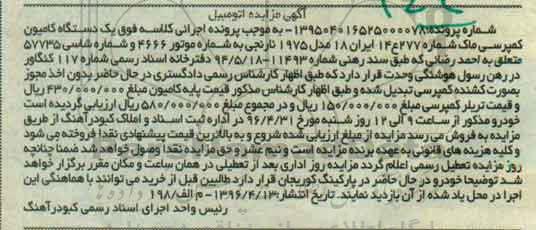 آگهی مزایده اتومبیل
شماره پرونده:۱۳۹۵۰۴۰۱۶۵۲۵۰۰۰۰۷۸- به موجب پرونده اجرائی کلاسه فوق یک دستگاه کامیون
کمپرسی ماک شماره ۲۷۷ع۱۴ ایران ۱۸ مدل ۱۹۷۵ نارنجی به شماره موتور ۴۶۶۶ و شماره شاسی ۵۷۷۳۵
متعلق به احمد رضائی که طبق سند رهنی شماره ۱۱۴۹۳-۹۴/۵/۱۸ دفترخانه اسناد رسمی شماره ۱۱۷ کنگاور
در رهن رسول هوشنگی وحدت قرار دارد که طبق اظهار کارشناس رسمی دادگستری در حال حاضر بدون اخذ مجوز
بصورت کشنده کمپرسی تبدیل شده و طبق اظهار کارشناس مذکور قیمت پایه کامیون مبلغ ۴۳۰/۰۰۰/۰۰۰ ریال
و قیمت تریلر کمپرسی مبلغ ۱۵۰/۰۰۰/۰۰۰ ریال و در مجموع مبلغ ۵۸۰/۰۰۰/۰۰۰ ریال ارزیابی گردیده است
خودرو مذکور از ساعت ۹ الی ۱۲ روز شنبه مورخ ۹۶/۴/۳۱ در اداره ثبت اسناد و املاک کبودرآهنگ از طریق
مزایده به فروش می رسد مزایده از مبلغ ارزیابی شده شروع و به بالاترین قیمت پیشنهادی نقدا فروخته می شود
و کلیه هزینه های قانونی به عهده برنده مزایده است و نیم عشر و حق مزایده نقدا وصول خواهد شد ضمنا چنانچه
روز مزایده تعطیل رسمی اعلام گردد مزایده روز اداری بعد از تعطیلی در همان ساعت و مکان مقرر برگزار خواهد
شد توضیحا خودرو در حال حاضر در پارکینگ کوریجان قرار دارد طالبین قبل از خرید می توانند با هماهنگی این
اجرا در محل یاد شده از آن بازدید نمایند. تاریخ انتشار:۱۳۹۶/۴/۱۳- م الف/۱۹۸
رئیس واحد اجرای اسناد رسمی کبودرآهنگ